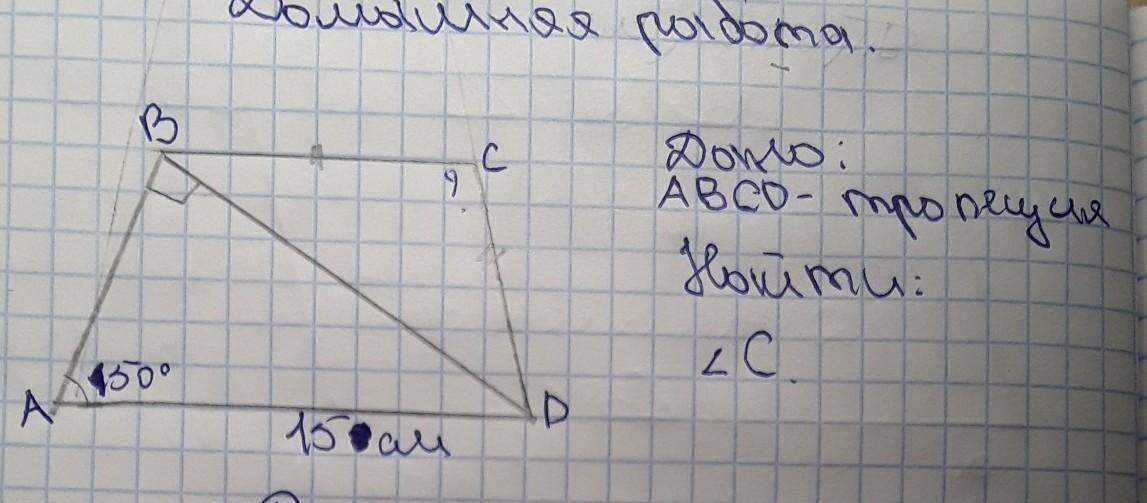 Домашняя работа.
B
C
?
Дано:
ABCD - трапеция
Найти:
∠C.
50°
A
D
15 см